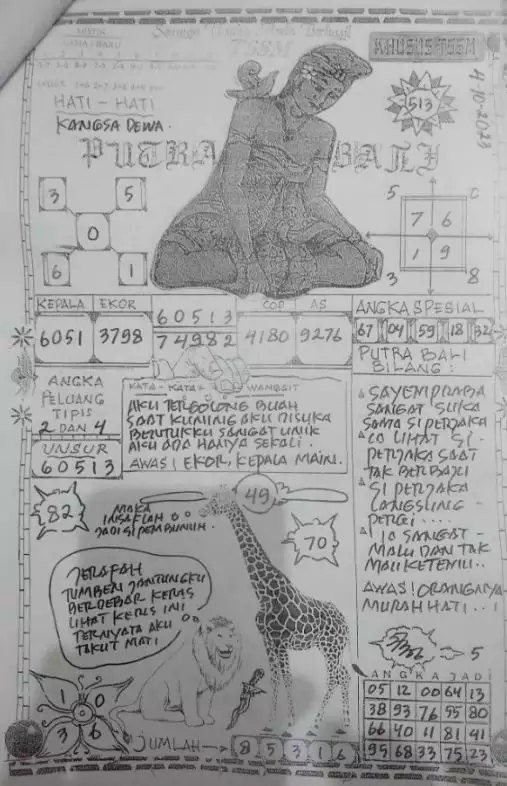 KHUSUS TSSM
TSSM
4-10-2023
513
HATI - HATI
KANGSA DEWA.
PUTRA BALI
3 5
0
6 1
5 0
7 6
1 9
3 8
KEPALA EKOR
6051 3798
60513
74982
COP AS
4180 9276
ANGKA SPESIAL
67 04 59 18 32
ANGKA
PELUANG
TIPIS
2 DAN 4
UNSUR
60513
KATA - KATA WANGSIT
AKU TERGOLONG BUAH
SAAT KUNING AKU DISUKA
BENTUKKU SANGAT UNIK
AKU ADA HANYA SEKALI.
AWAS! EKOR, KEPALA MAIN.
PUTRA BALI
BILANG:
SANGAT SUKA
SAMA SI PERJAKA
LO LIHAT SI
PERJAKA SAAT
TAK BERBAJU
SI PERJAKA
LANGSUNG
PERGI ....
IO SANGAT -
MALU DAN TAK
MAU KETEMU..
AWAS! ORANGNYA
MURAH HATI...!
82
MAKA
INSAFLAH
JADI SI PEMBUNUH.
49
70
JERAFAH
TUMBEN JANTUNGKU
BERDEBAR KERAS
LIHAT KERIS INI
TERNYATA AKU
TAKUT MATI
1 0
3 6
JUMLAH → 8 5 3 1 6
5
ANGKA JADI
05 12 00 64 13
38 93 76 55 80
66 40 11 81 41
95 68 33 75 23